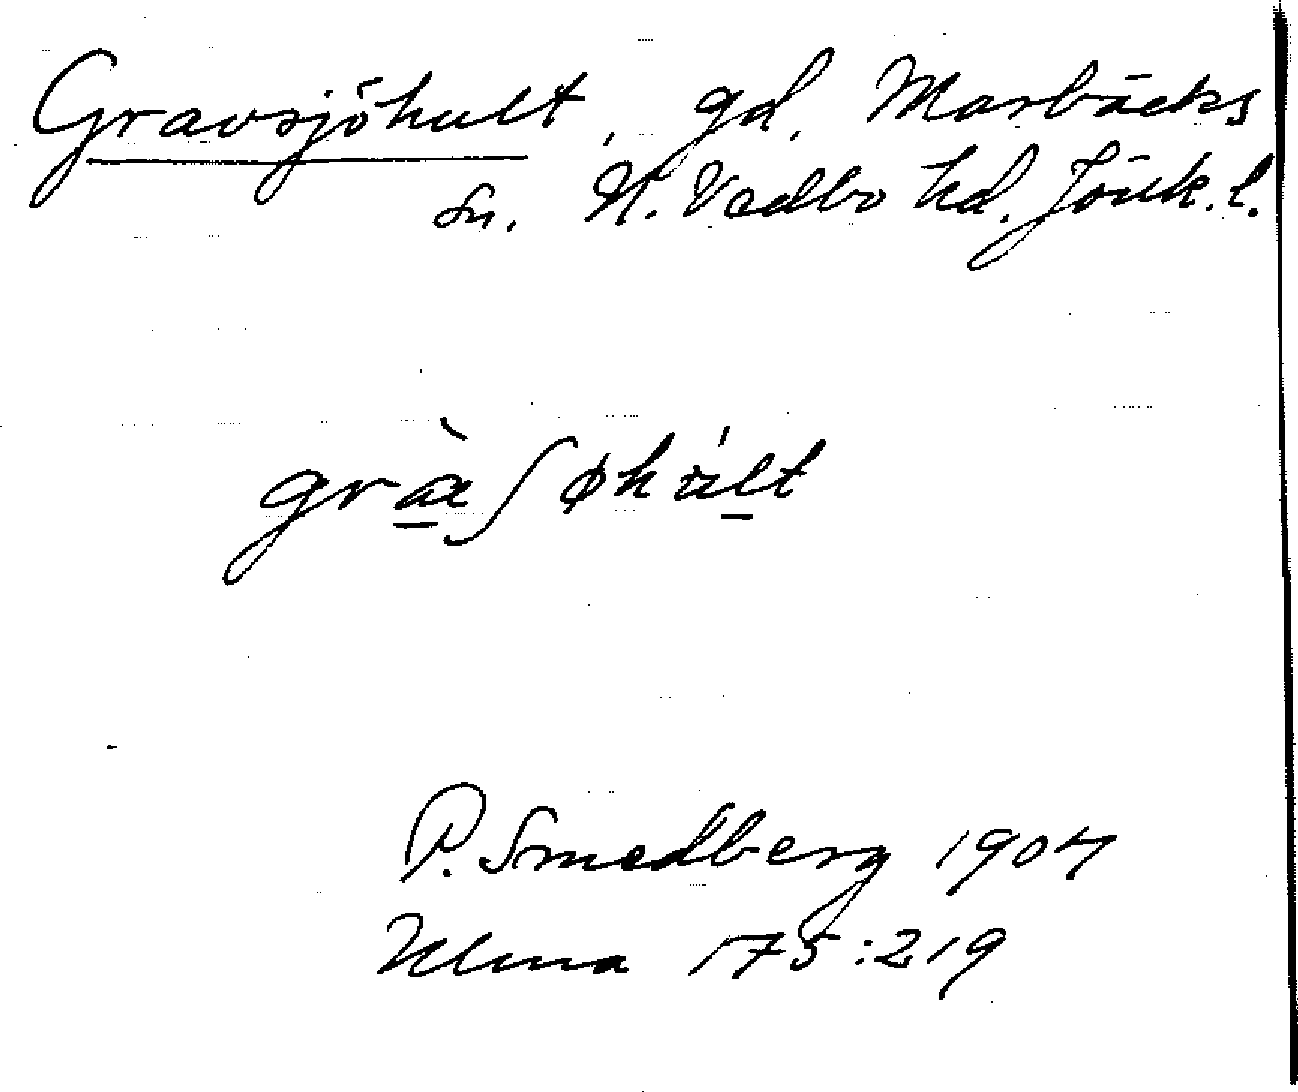 Gravsjöhult, gd, Marbäcks
sn. N. Vedbo hd. Jönk. l.
gràʃøhúlt
P. Smedberg 1904
Ulma 175:219